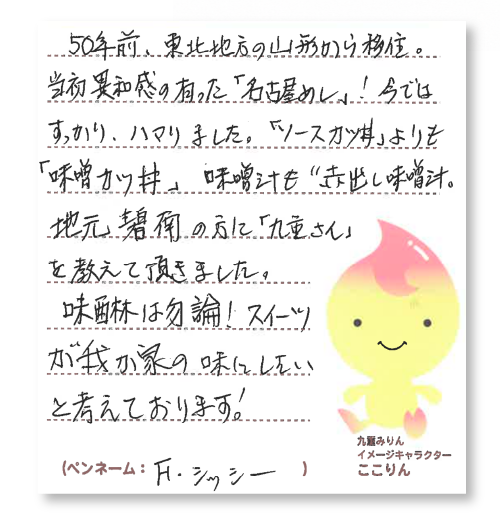 50年前、東北地方の山形から移住。
当初異和感の有った「名古屋めし」！今では
すっかり、ハマりました。「ソースカツ丼」よりも
「味噌カツ丼」 味噌汁も“赤出し味噌汁。
地元碧南の方に「九重さん」
を教えて頂きました。
味醂は勿論！スイーツ
が我が家の味にしたい
と考えております！
(ペンネーム： F・シッシー )
九重みりん
イメージキャラクター
ここりん